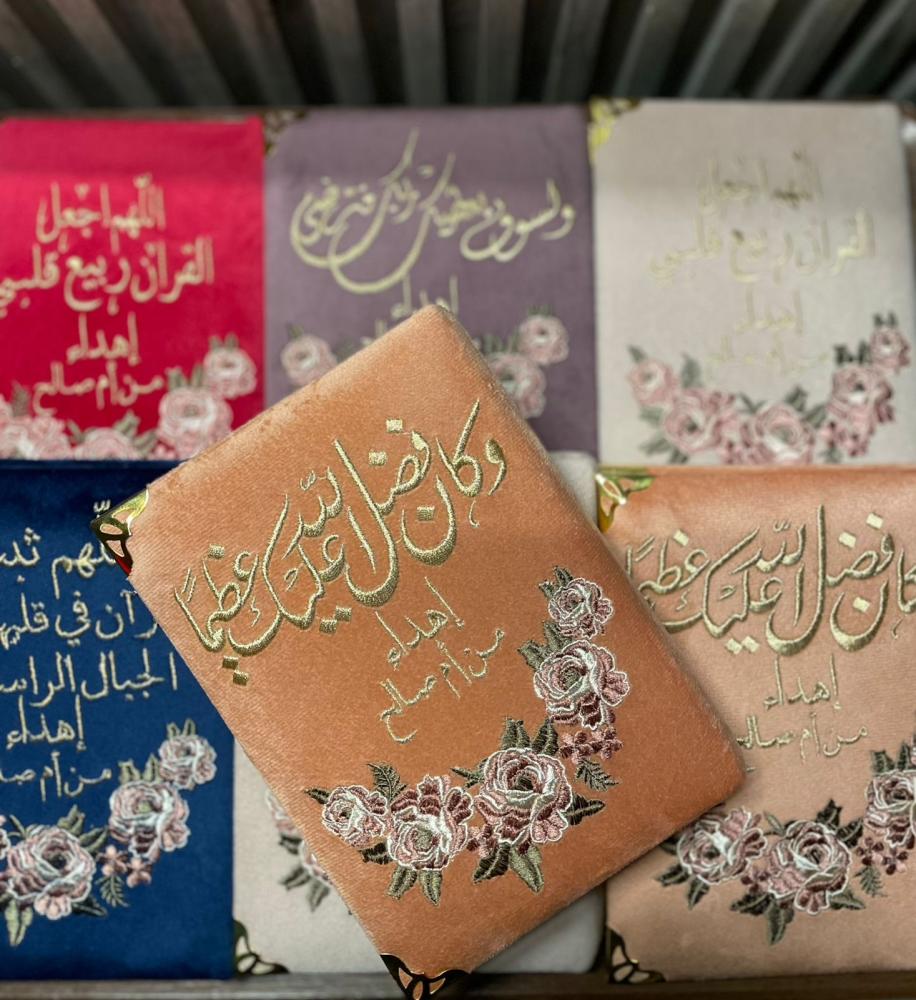 اللهم اجعل
القرآن ربيع قلبي
إهداء
من أم صالح
ولسوف يعطيك ربك فترضى
إهداء
اللهم اجعل
القرآن ربيع قلبي
إهداء
من أم صالح
وكان فضل الله عليك عظيمًا
إهداء
من أم صالح
في قلبي
الجبال
إهداء
من أم
فضل الله عليك
إهداء
من أم صالح